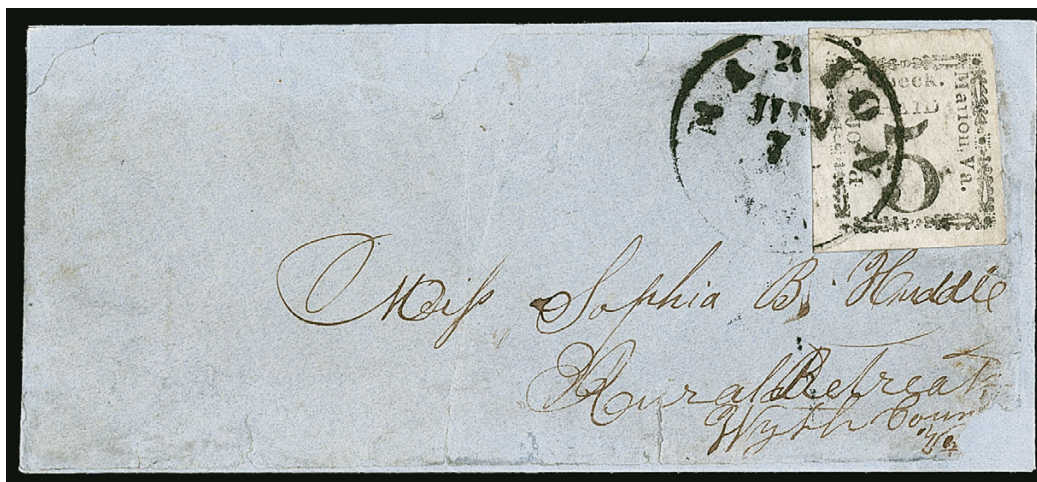 MARION
JUN
check.
PAID
5
Marion, Va.
Miss Sophia B. Huddle
Rural Retreat
Wyth County
Va